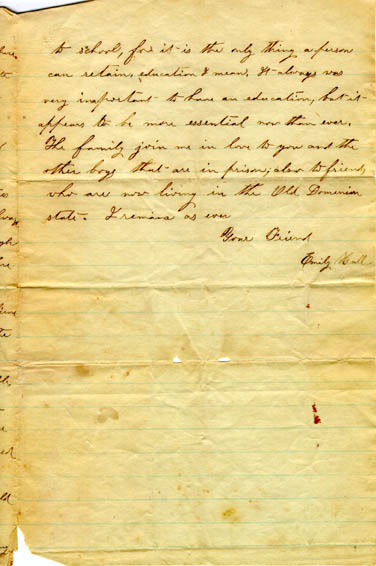 to school, for it is the only thing a person
can retain, education I mean. It always was
very important to have an education, but it
appears to be more essential now than ever.
The family join me in love to you and the
other boys that are in prison, also to friends
who are now living in the Old Dominion
state. I remain as ever
Your Friend
Emily